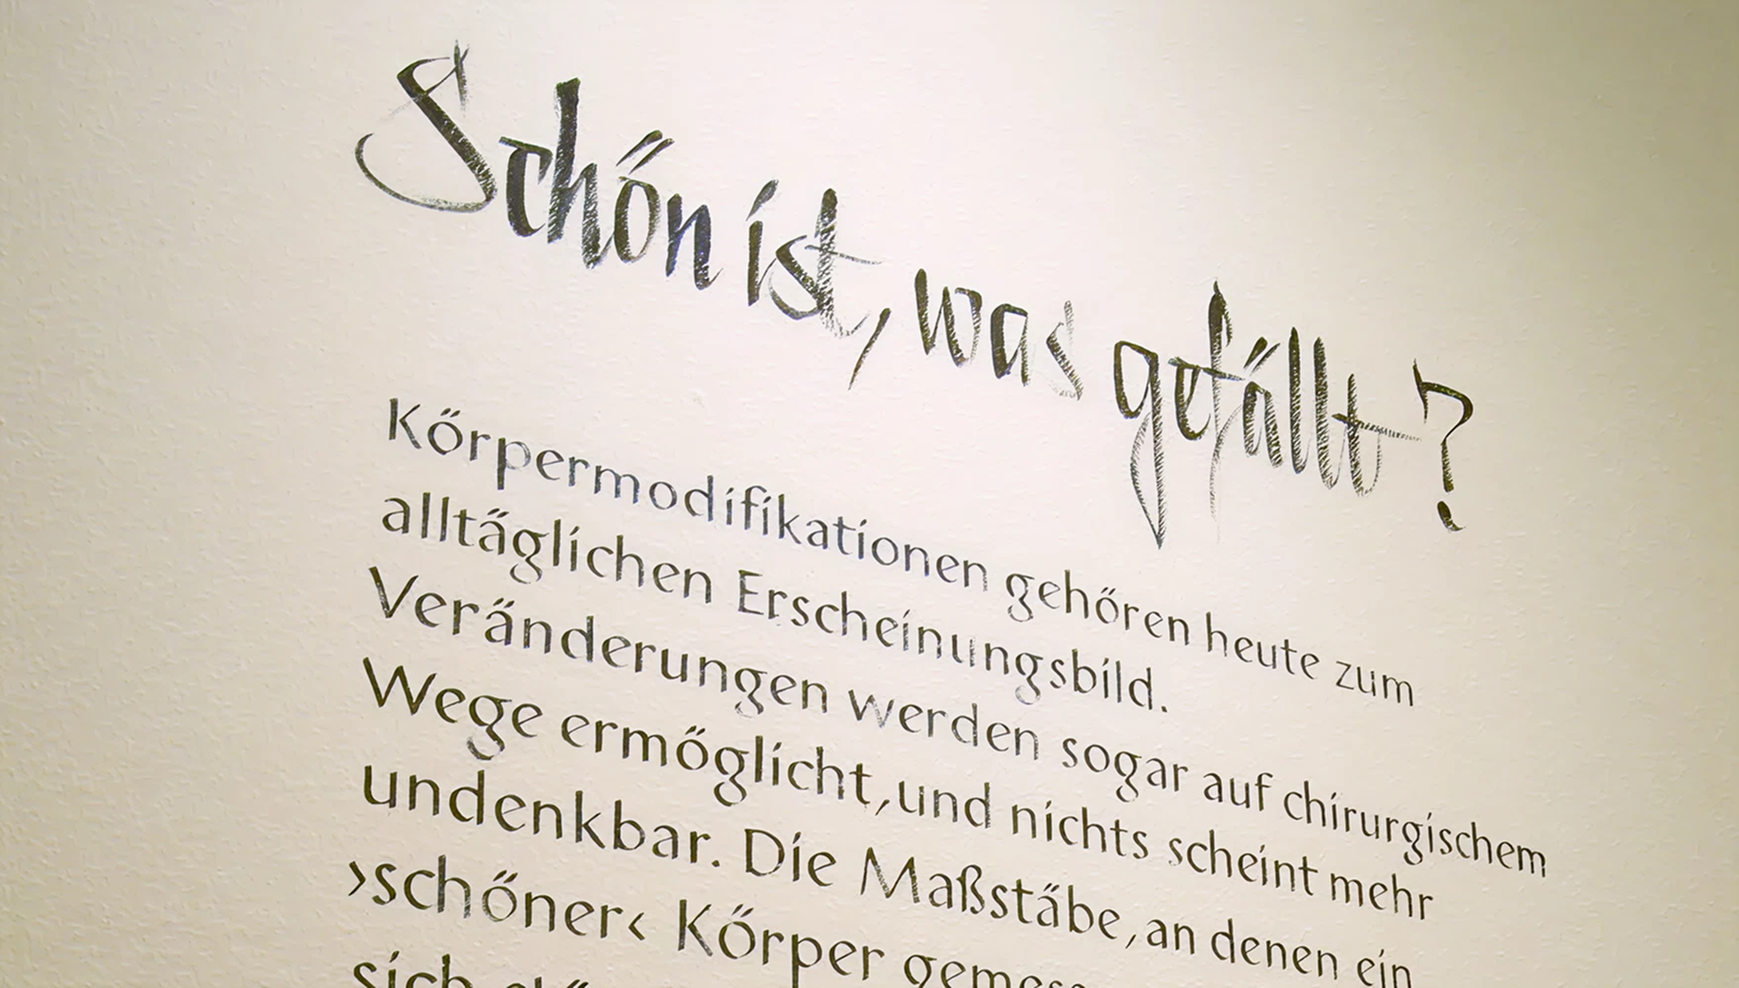 Schön ist, was gefällt?
Körpermodifikationen gehören heute zum
alltäglichen Erscheinungsbild.
Veränderungen werden sogar auf chirurgischem
Wege ermöglicht, und nichts scheint mehr
undenkbar. Die Maßstäbe, an denen ein
›schöner‹ Körper
sich